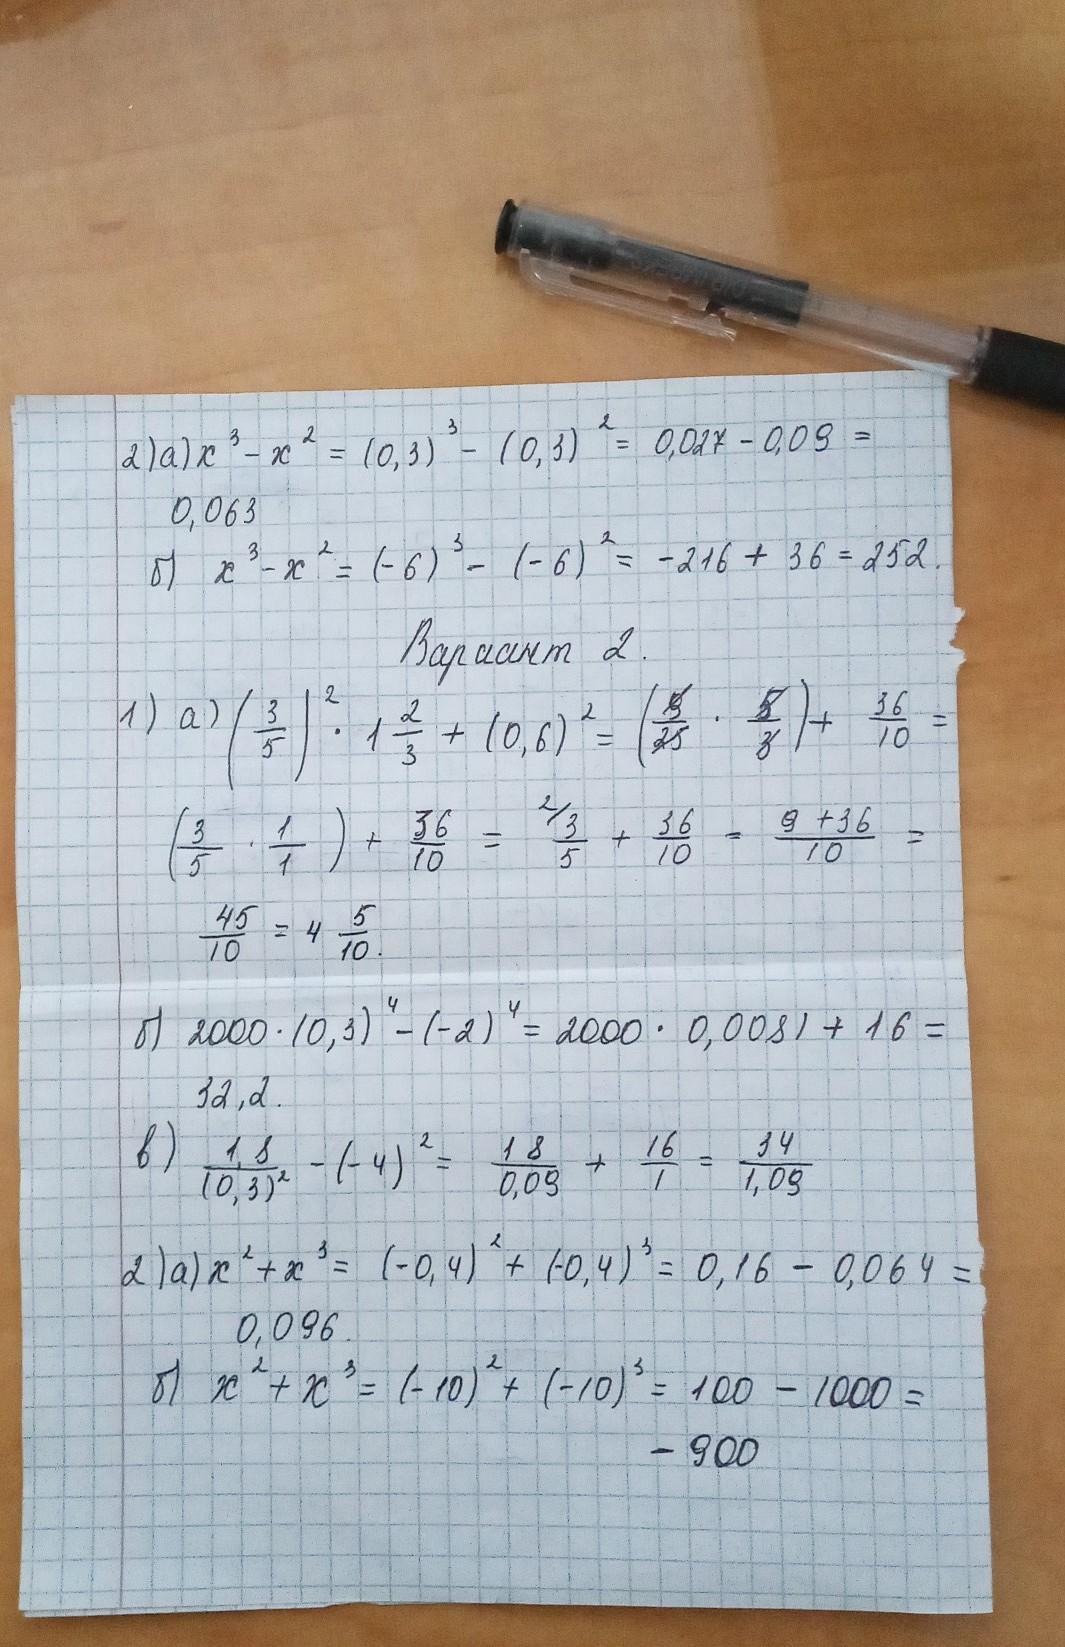 2) а) x³ - x² = (0,3)³ - (0,3)² = 0,027 - 0,09 =
0,063
б) x³ - x² = (-6)³ - (-6)² = -216 + 36 = 252.
Вариант 2.
1) а) (3/5)² · 1 2/3 + (0,6)² = (9/25 · 5/3) + 36/10 =
(3/5 · 1/1) + 36/10 = ²/3/5 + 36/10 = 9+36/10 =
45/10 = 4 5/10.
б) 2000 · (0,3)⁴ - (-2)⁴ = 2000 · 0,0081 + 16 =
32,2.
в) 1,8/(0,3)² - (-4)² = 18/0,09 + 16/1 = 34/1,09
2) а) x² + x³ = (-0,4)² + (-0,4)³ = 0,16 - 0,064 =
0,096.
б) x² + x³ = (-10)² + (-10)³ = 100 - 1000 =
- 900